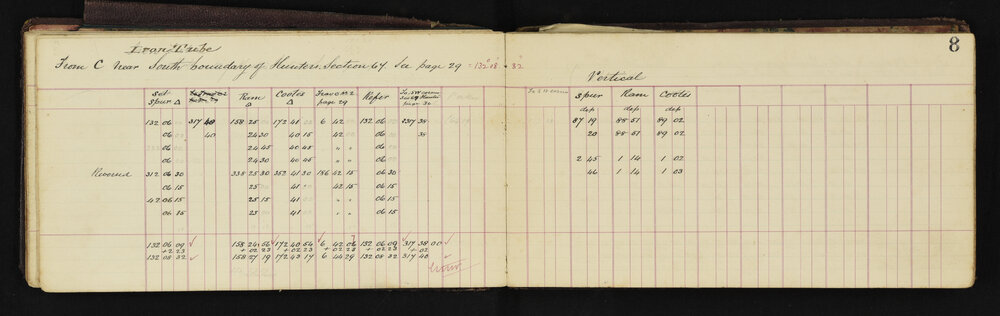 8
Iron Tube
From C Near South boundary of Hunters. Section 64 See page 29 = 132° 08' - 32"
Vertical
Set Spur △ Ram Cooles △ Trav page 29 Refer page 30
Spur Ram Cooles
dep. dep. dep.
132 06 317 40 158 25 172 41 6 42 132 06 317 38 87 19 88 51 89 02
06 40 24 30 40 15 42 06 38 20 88 51 89 02
06 24 45 40 45 " " 06 2 45 1 14 1 02
06 24 30 40 45 " " 06 46 1 14 1 03
Reversed 312 06 30 338 25 30 352 41 30 186 42 15 06 30
06 15 25 41 42 15 06 15
42 06 15 25 15 41 " " 06 15
06 15 25 41 " " 06 15
132 06 09 158 24 56 172 40 54 6 42 06 132 06 09 317 38 00
+2 23 +02 23 +02 23 +02 23 02 23 +02
132 08 32 158 27 19 172 43 17 6 44 29 132 08 32 317 40